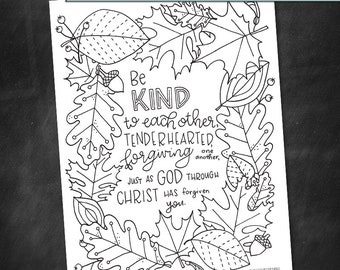 Be
KIND
to each other,
TENDERHEARTED
forgiving one another,
JUST AS GOD THROUGH
CHRIST HAS forgiven
you.